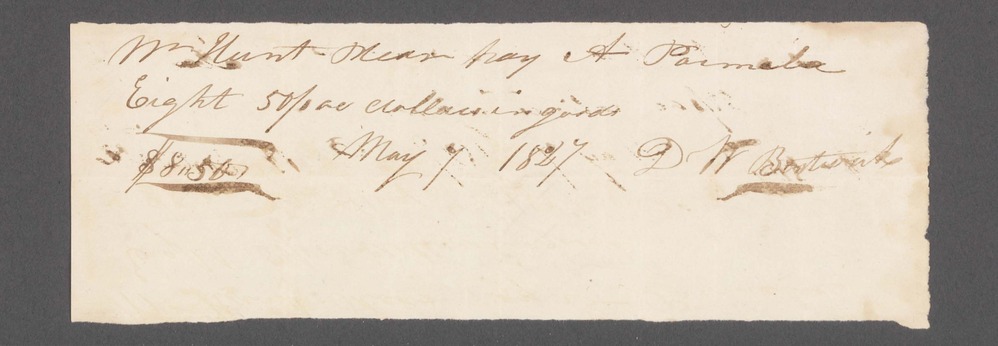 Wm Hunt Please pay A Parmela
Eight 50/100 dollars in goods
$8.50 May 7 1827 D W Bostwick